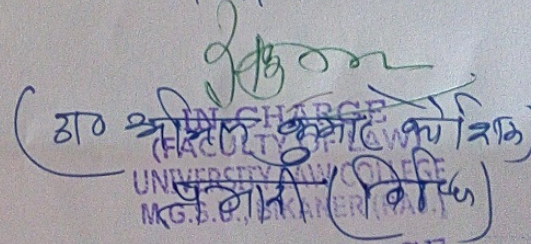 (डा० अनिल कुमार कौशिक)
IN-CHARGE
(FACULTY OF LAW)
प्रभारी (विधि)
UNIVERSITY LAW COLLEGE
M.G.S.U., BIKANER (RAJ.)